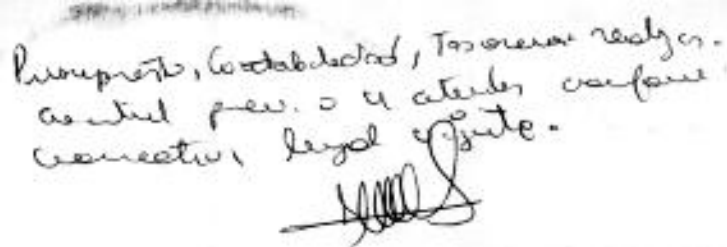 Presupuesto, Contabilidad, Tesoreria realizar
control previo y atender conforme
normativa legal vigente.